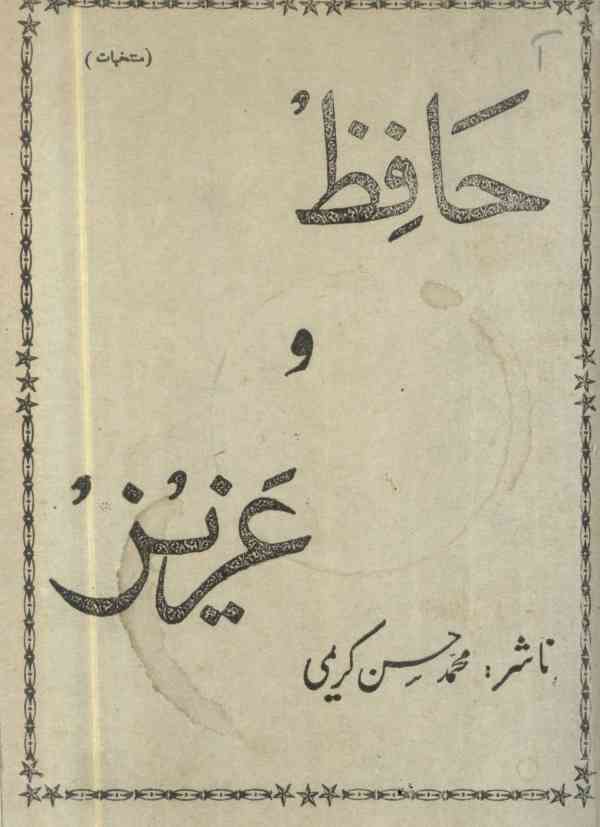 (منتخبات)
حَافِظُ
و
عَزِیْزُ
ناشر: محمد حسن کریمی